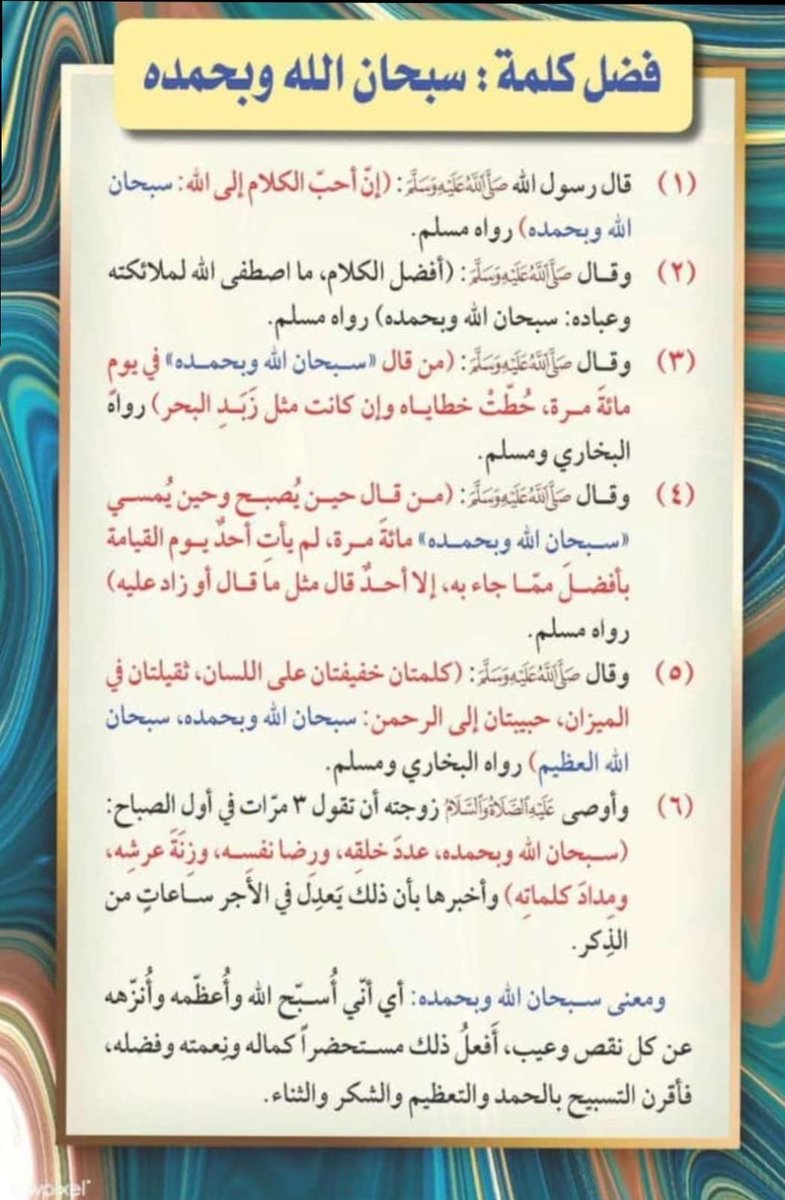 فضل كلمة : سبحان الله وبحمده
(١) قال رسول الله صَلَّى اللَّهُ عَلَيْهِ وَسَلَّمَ: (إنّ أحبّ الكلام إلى الله: سبحان
الله وبحمده) رواه مسلم.
(٢) وقال صَلَّى اللَّهُ عَلَيْهِ وَسَلَّمَ: (أفضل الكلام، ما اصطفى الله لملائكته
وعباده: سبحان الله وبحمده) رواه مسلم.
(٣) وقال صَلَّى اللَّهُ عَلَيْهِ وَسَلَّمَ: (من قال «سبحان الله وبحمده» في يوم
مائةَ مرة، حُطّتْ خطاياه وإن كانت مثل زَبَدِ البحر) رواهُ
البخاري ومسلم.
(٤) وقال صَلَّى اللَّهُ عَلَيْهِ وَسَلَّمَ: (من قال حين يُصبح وحين يُمسي
«سبحان الله وبحمده» مائةَ مرة، لم يأتِ أحدٌ يوم القيامة
بأفضلَ ممّا جاء به، إلا أحدٌ قال مثل ما قال أو زاد عليه)
رواه مسلم.
(٥) وقال صَلَّى اللَّهُ عَلَيْهِ وَسَلَّمَ: (كلمتان خفيفتان على اللسان، ثقيلتان في
الميزان، حبيبتان إلى الرحمن: سبحان الله وبحمده، سبحان
الله العظيم) رواه البخاري ومسلم.
(٦) وأوصى عَلَيْهِ الصَّلَاةُ وَالسَّلَامُ زوجته أن تقول ٣ مرّات في أول الصباح:
(سبحان الله وبحمده، عددَ خلقِه، ورضا نفسِه، وزِنَةَ عرشِه،
ومِدادَ كلماتِه) وأخبرها بأن ذلك يَعدِل في الأجر ساعاتٍ من
الذِكر.
ومعنى سبحان الله وبحمده: أي أنّي أُسبّح الله وأُعظّمه وأُنزّهه
عن كل نقص وعيب، أَفعلُ ذلك مستحضراً كماله ونِعمته وفضله،
فأقرن التسبيح بالحمد والتعظيم والشكر والثناء.